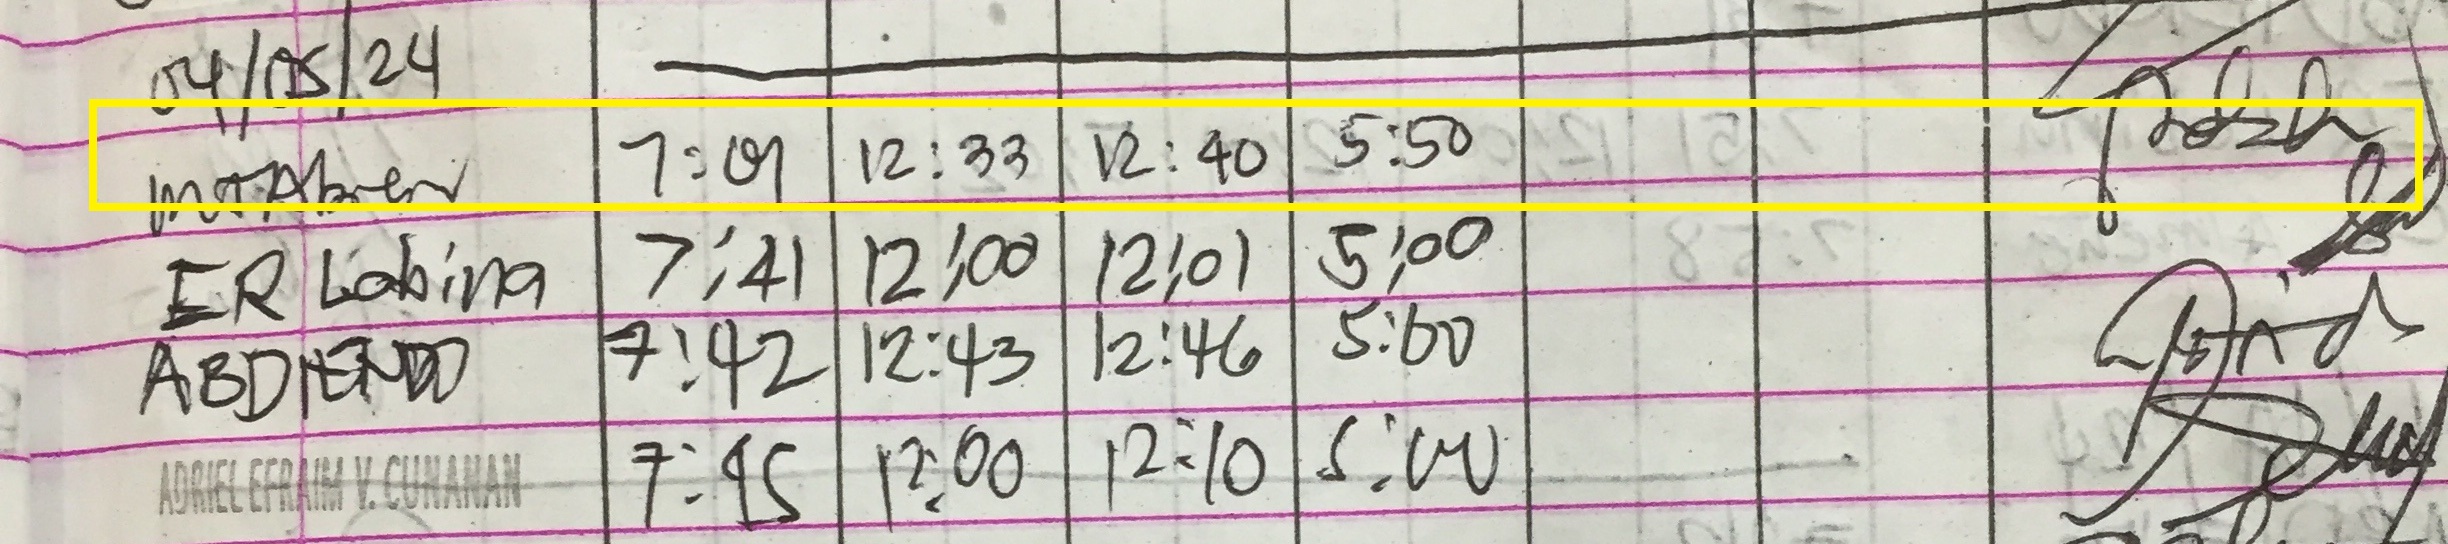 04/05/24
7:01 12:33 12:40 5:50
ER Labina 7:41 12:00 12:01 5:00
7:42 12:43 12:46 5:00
ADRIEL EFRAIM V. CUNANAN 7:45 12:00 12:10 5:00